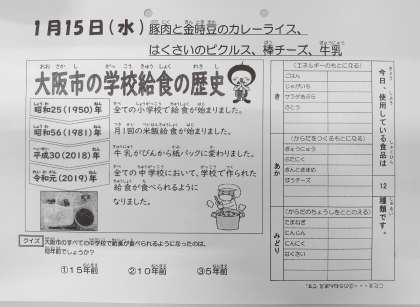 1月15日(水) 豚肉と金時豆のカレーライス、
はくさいのピクルス、棒チーズ、牛乳
大阪市の学校給食の歴史
昭和25(1950)年 全ての小学校で給食が始まりました。
昭和56(1981)年 月1回の米飯給食が始まりました。
平成30(2018)年 牛乳がびんから紙パックに変わりました。
令和元(2019)年 全ての中学校において、学校で作られた
給食が食べられるように
なりました。
クイズ 大阪市のすべての中学校で給食が食べられるようになったのは、
何年前でしょうか?
①15年前 ②10年前 ③5年前
今日、使用している食品は 12 種類です。
き
(エネルギーのもとになる)
ごはん
じゃがいも
サラダあぶら
さとう
あか
(からだをつくるもとになる)
ぎゅうにゅう
ぶたにく
きんときまめ
ぼうチーズ
みどり
(からだのちょうしをととのえる)
たまねぎ
にんじん
にんにく
はくさい